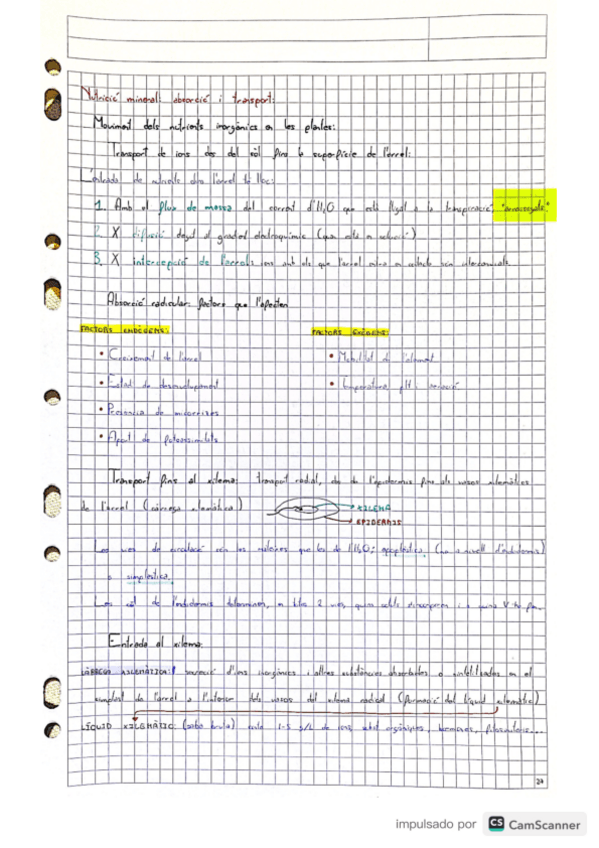 Nutrició mineral: absorció i transport:
Moviment dels nutrients inorgànics en les plantes:
Transport de ions des del sòl fins la superfície de l'arrel:
L'entrada de nutrients dins l'arrel té lloc:
1. Amb el flux de massa del corrent d'H2O que està lligat a la transpiració, "arrossegats".
2. X difusió degut al gradient electroquímic
3. X intercepció de l'arrel: ions amb els que l'arrel entra en contacte
Absorció radicular: factors que l'afecten
FACTORS ENDÒGENS:
FACTORS EXÒGENS:
• Creixement de l'arrel
• Mobilitat de l'element
• Estad de desenvolupament
• Temperatura, pH i aireació
• Presència de micorrizes
• Aport de fotoassimilats
Transport fins al xilema: transport radial, des de l'epidermis fins als vasos xilemàtics
de l'arrel (càrrega xilemàtica)
XILEMA
EPIDERMIS
Les vies de circulació són les mateixes que les de l'H2O: apoplàstica (no a nivell d'endodermis)
o simplàstica.
de l'endodermis determinen, en les 2 vies, quins
Entrada al xilema:
CÀRREGA XILEMÀTICA: secreció d'ions inorgànics i altres substàncies absorbides o sintetitzades en el
simplast de l'arrel a l'interior dels vasos del xilema radical (formació del líquid xilemàtic)
LÍQUID XILEMÀTIC: (saba bruta) conté 1-5 g/L de ions, subst orgàniques, hormones,
27
impulsado por CS CamScanner